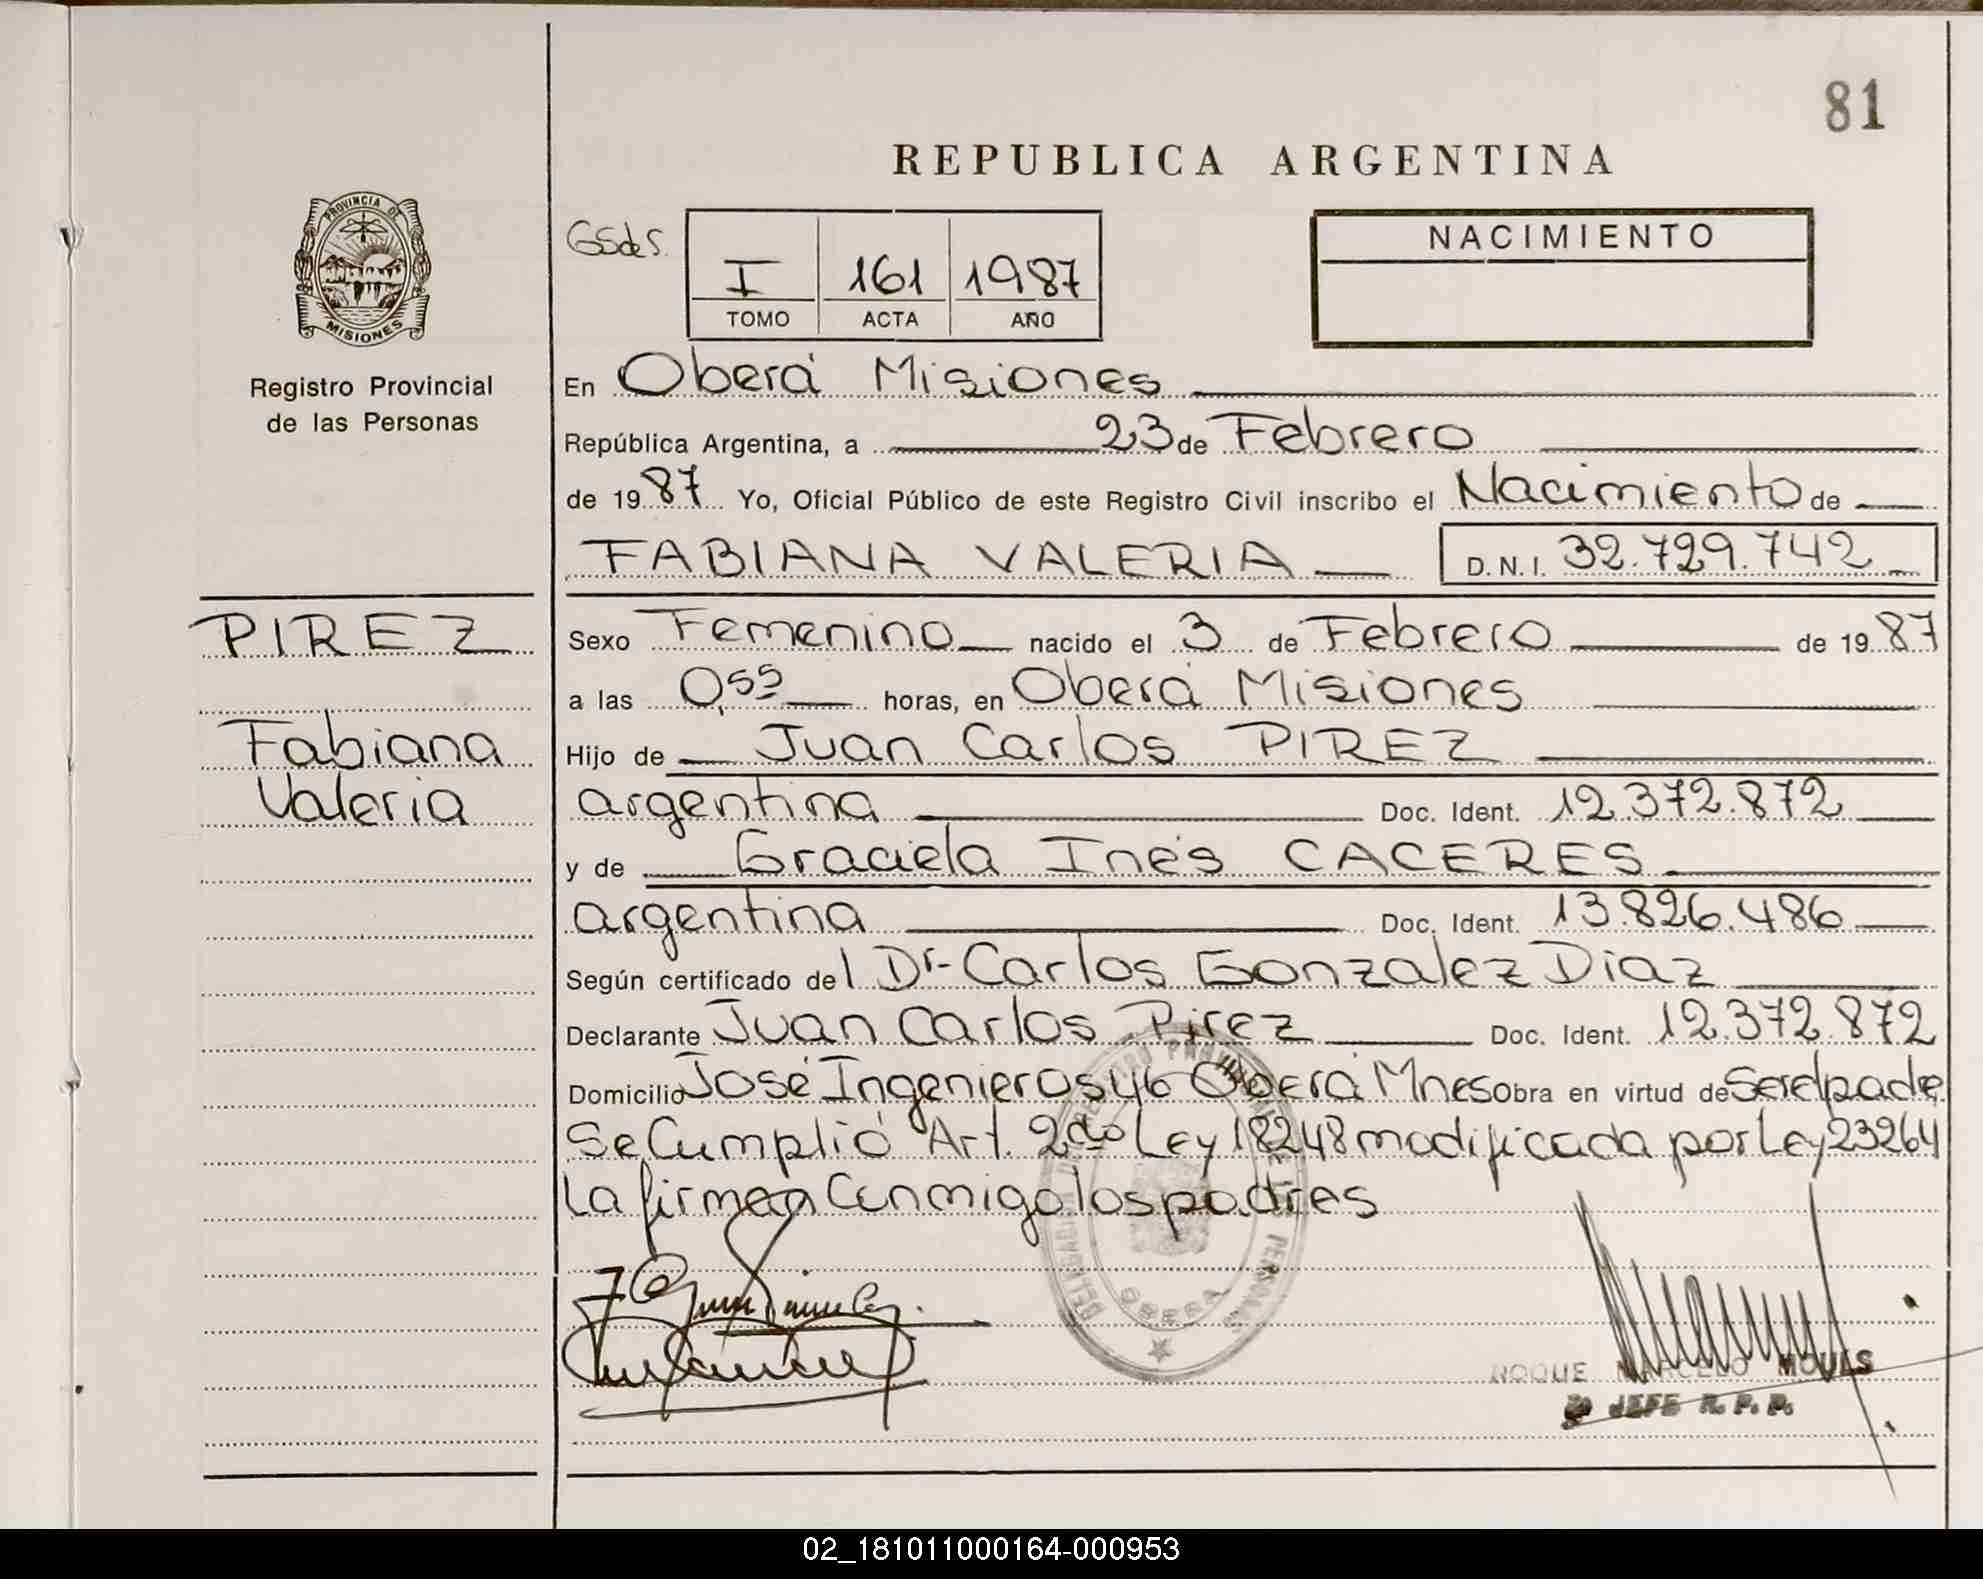 81
REPUBLICA ARGENTINA
PROVINCIA DE
MISIONES
Registro Provincial
de las Personas
GSdeS.
I 161 1987
TOMO ACTA AÑO
NACIMIENTO
En Oberá Misiones
República Argentina, a 23 de Febrero
de 1987 Yo, Oficial Público de este Registro Civil inscribo el Nacimiento de
FABIANA VALERIA D.N.I. 32.729.742
PIREZ
Fabiana
Valeria
Sexo Femenino nacido el 3 de Febrero de 1987
a las 0,55 horas, en Oberá Misiones
Hijo de Juan Carlos PIREZ
argentina Doc. Ident. 12.372.872
y de Graciela Inés CACERES
argentina Doc. Ident. 13.826.486
Según certificado del Dr. Carlos Gonzalez Diaz
Declarante Juan Carlos Pirez Doc. Ident. 12.372.872
Domicilio José Ingenieros 46 Oberá Mnes Obra en virtud de Ser el padre
Se Cumplió Art. 2do Ley 18248 modificada por Ley 23264
La firman Conmigo los padres
OBERA
ROQUE MARCELO
JEFE R. P. P.
02_181011000164-000953